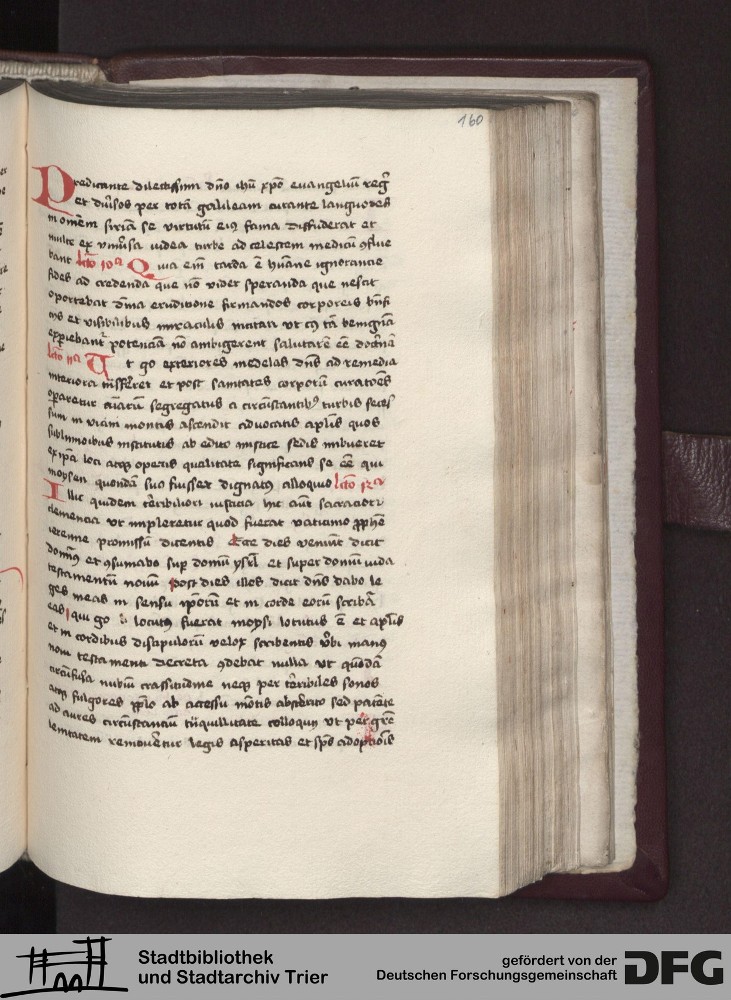 160
Predicante dilectissimi dño ihũ xpõ euangeliũ regẽ
et diũsos per totã galileam curante languores
in omẽm siriã se virtutũ eiꝰ fama diffuderat et
multe ex vniũsa iudea turbe ad celestem medicũ ꝯflue
bant lc̃to 10ª Quia eim̃ tarda ẽ hũane ignorancie
fides ad credenda que nõ videt speranda que nescit
oportebat diũa erudicione firmandos corporeis bñfi
cijs et visibilibus miraculis incitari vt cꝰ tã benignã
exp̱iebant᷑ potenciã nõ ambigerent salutarẽ eẽ doctnã
lc̃to 11ª Ut go exteriores medelas dñs ad remedia
interiora tñsferret et post sanitates corporũ curatões
oꝑaretur aĩarũ segregatus a circũstantibꝰ turbis seces
sum in vicini montis ascendit aduocatis aplis quos
sublimioribus institutis ab edito mistice sedis imbueret
ex ipã loci atqꝫ operis qualitate significans se eẽ qui
moysen quondã suo fuisset dignatꝰ alloquio lc̃to 12ª
Illic quidem t̃ribiliori iusticia hic aũt sacraciori
clemencia vt impleretur quod fuerat vaticinio ꝓphẽ
ieremie promissũ dicentis Ecce dies veniũt dicit
domĩꝰ et ꝯsumabo suꝑ domũ ysrl̃ et super domũ iuda
testamentũ nouũ post dies illos dicit dñs dabo le
ges meas in sensu ipõrũ et in corde eorũ scribã
eas qui go locutꝰ fuerat moysi locutus ẽ et aplis
et in cordibus discipulorũ velox scribentis vb̃i manꝰ
noui testamenti decreta ꝯdebat nulla vt quõdã
circũfusa nubiũ crassitudine neqꝫ per t̃ribiles sonos
atqꝫ fulgores pplo ab accessu mõtis abst̃rito sed patẽte
ad aures circũstanciũ t̃nquillitate colloquij vt per gr̃e
lenitatem remouẽtur legis asperitas et sp̃s adoptiõis
Stadtbibliothek
und Stadtarchiv Trier
gefördert von der
Deutschen Forschungsgemeinschaft
DFG